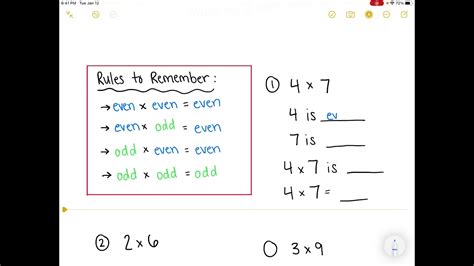 9:41 PM Tue Jan 12
72%
Rules to Remember:
→ even × even = even
→ even × odd = even
→ odd × even = even
→ odd × odd = odd
① 4 × 7
4 is ev______
7 is ______
4 × 7 is ______
4 × 7 = ____
② 2 × 6
3 × 9